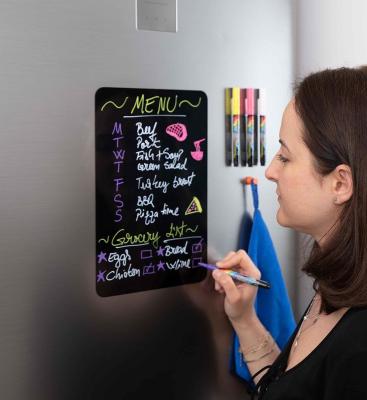 ~ MENU ~
M Beef
T Pork
W Fish + Soup
T Green Salad
F Turkey breast
S BBQ
S Pizza time
~ Grocery List ~
Eggs Bread
Chicken Wine